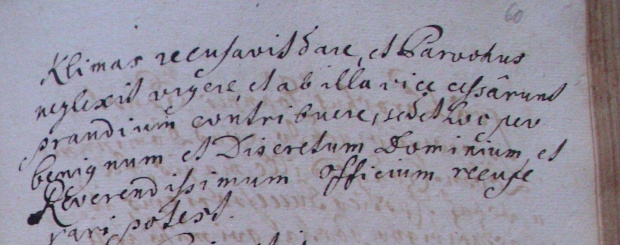 60
Klimas recusavit dare, et Parochus
neglexit urgere et ab illa vice cessârunt
prandium contribuere, sed et hoc per
benignum et Discretum Dominium, et
Reverendissimum officium recupe
rari potest.